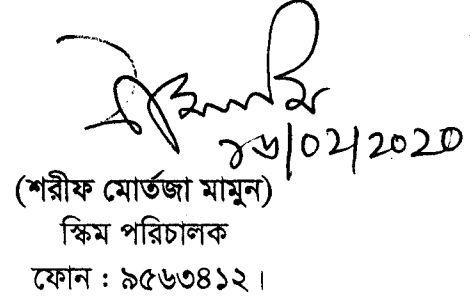 ১৬/০২/২০২০
(শরীফ মোর্তজা মামুন)
স্কিম পরিচালক
ফোন : ৯৫৬৩৪১২।